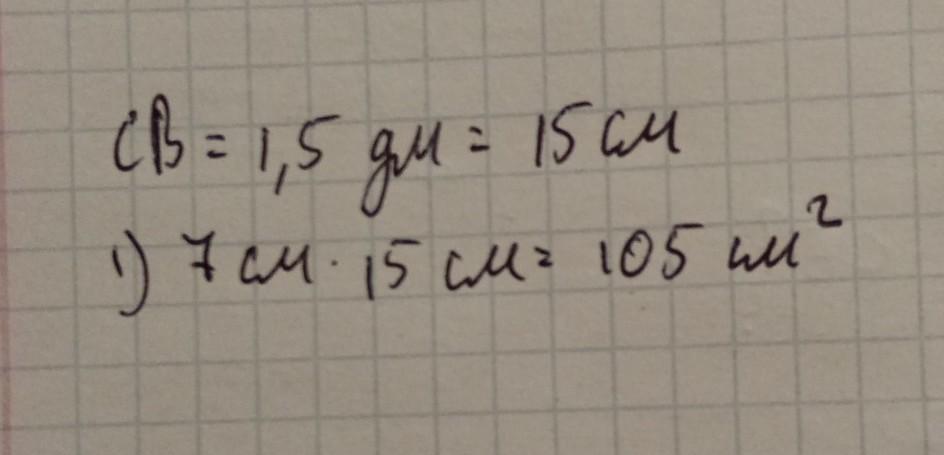 СВ = 1,5 дм = 15 см
1) 7 см · 15 см = 105 см²